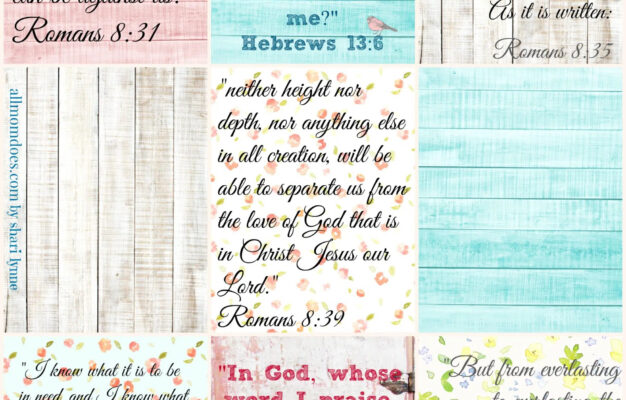 can be against us?"
Romans 8:31
me?"
Hebrews 13:6
As it is written:
Romans 8:35
allmomdoes.com by shari lynne
"neither height nor
depth, nor anything else
in all creation, will be
able to separate us from
the love of God that is
in Christ Jesus our
Lord."
Romans 8:39
"I know what it is to be
in need and I know what
"In God, whose
word I praise
"But from everlasting
to everlasting the